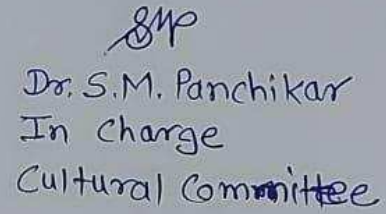 SMP
Dr. S.M. Panchikar
In Charge
Cultural Committee